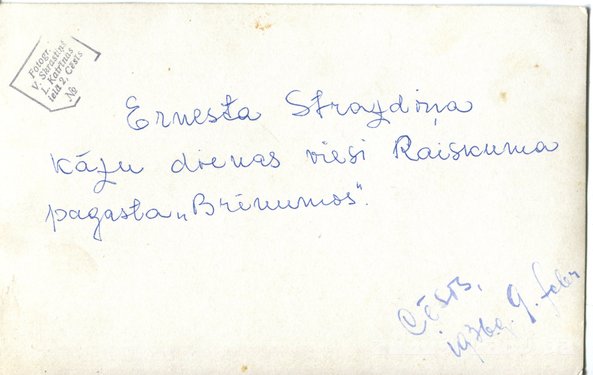 Fotogr.
V. Skrastiņš
L. Katrīnas
ielā 2, Cēsīs
№
Ernesta Strazdiņa
kāzu dienas viesi Raiskuma
pagasta „Brēnumos".
Cēsīs,
1936g. 9. febr